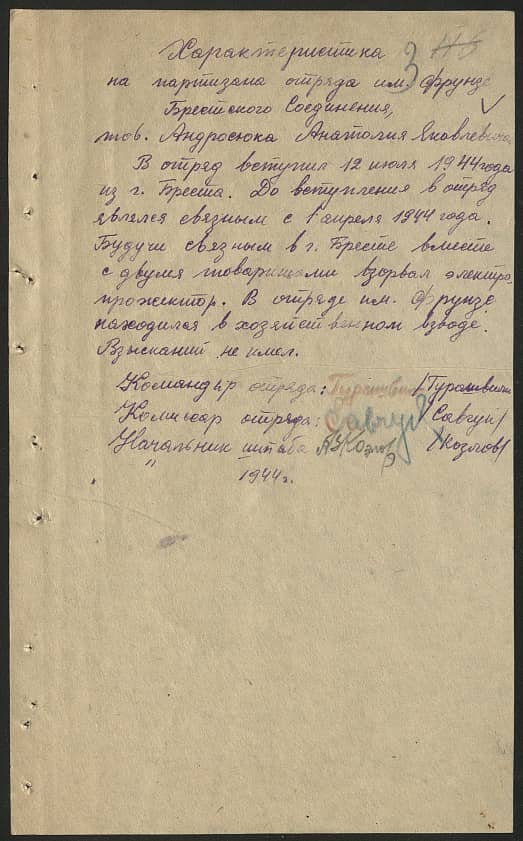 3
Характеристика
на партизана отряда им. Фрунзе
Брестского Соединения,
тов. Андросюка Анатолия Яковлевича
В отряд вступил 12 июля 1944 года
из г. Бреста. До вступления в отряд
являлся связным с 1 апреля 1944 года.
Будучи связным в г. Бресте вместе
с двумя товарищами взорвал электро-
прожектор. В отряде им. Фрунзе
находился в хозяйственном взводе.
Взысканий не имел.
Командир отряда:
Комиссар отряда: Савчук /Савчук/
Начальник штаба Козлов /Козлов/
" 1944 г.